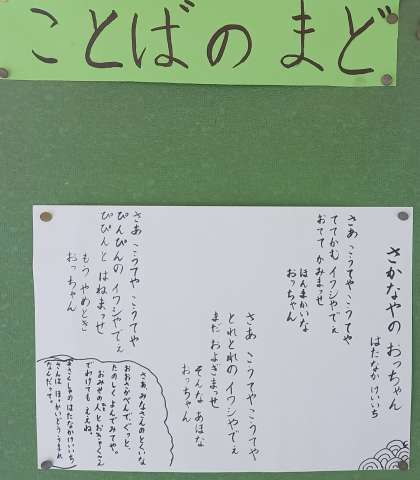 ことばの まど
さかなやの おっちゃん
はたなか けいいち
さあ こうてや こうてや
ててかむ イワシやでぇ
おてて かみまっせ
ほんまかいな
おっちゃん
さあ こうてや こうてや
とれとれの イワシやでぇ
まだ およぎまっせ
そんな あほな
おっちゃん
さあ こうてや こうてや
ぴんぴんの イワシやでぇ
ぴぴんと はねまっせ
もう やめとき
おっちゃん
さあ、みなさんのとくいな
おおさかべんで、ぐっと、
たのしくよんでみてや。
おみせの人とおきゃくさん
でわけても ええね。
おさくしゃのはたなかけいいち
さんは、ほっかいどううまれ
なんだって。